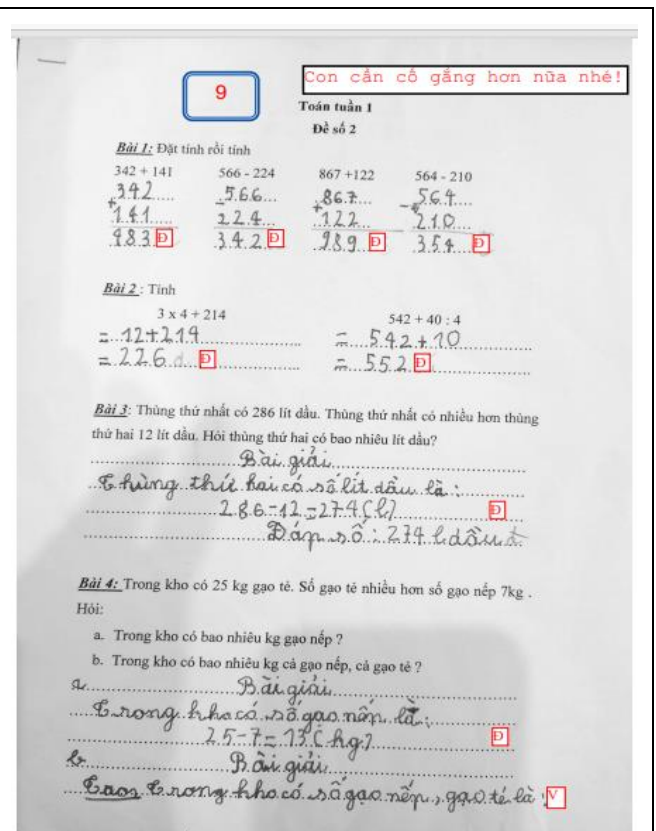 9
Con cần cố gắng hơn nữa nhé!
Toán tuần 1
Đề số 2
Bài 1: Đặt tính rồi tính
342 + 141 566 - 224 867 +122 564 - 210
342 566 867 564
+ - + -
141 224 122 210
483 Đ 342 Đ 989 Đ 354 Đ
Bài 2 : Tính
3 x 4 + 214 542 + 40 : 4
= 12+214 = 542+10
= 226 Đ = 552 Đ
Bài 3: Thùng thứ nhất có 286 lít dầu. Thùng thứ nhất có nhiều hơn thùng
thứ hai 12 lít dầu. Hỏi thùng thứ hai có bao nhiêu lít dầu?
Bài giải
Thùng thứ hai có số lít dầu là :
286-12=274(l) Đ
Đáp số : 274 l dầu
Bài 4: Trong kho có 25 kg gạo tẻ. Số gạo tẻ nhiều hơn số gạo nếp 7kg .
Hỏi:
a. Trong kho có bao nhiêu kg gạo nếp ?
b. Trong kho có bao nhiêu kg cả gạo nếp, cả gạo tẻ ?
a Bài giải
Trong kho có số gạo nếp là :
25-7=13(kg) Đ
b Bài giải
Trong kho có số gạo nếp, gạo tẻ là : V